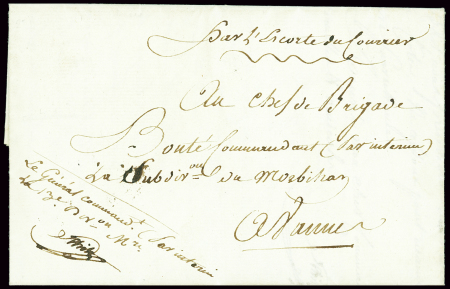 Par l'Escorte du Courrier
Au chef de Brigade
Bonté Commandant (Par interim)
La Subdivon du Morbihan
A Vannes
Le Général Command.t (Par interim
La 13e Don Mre